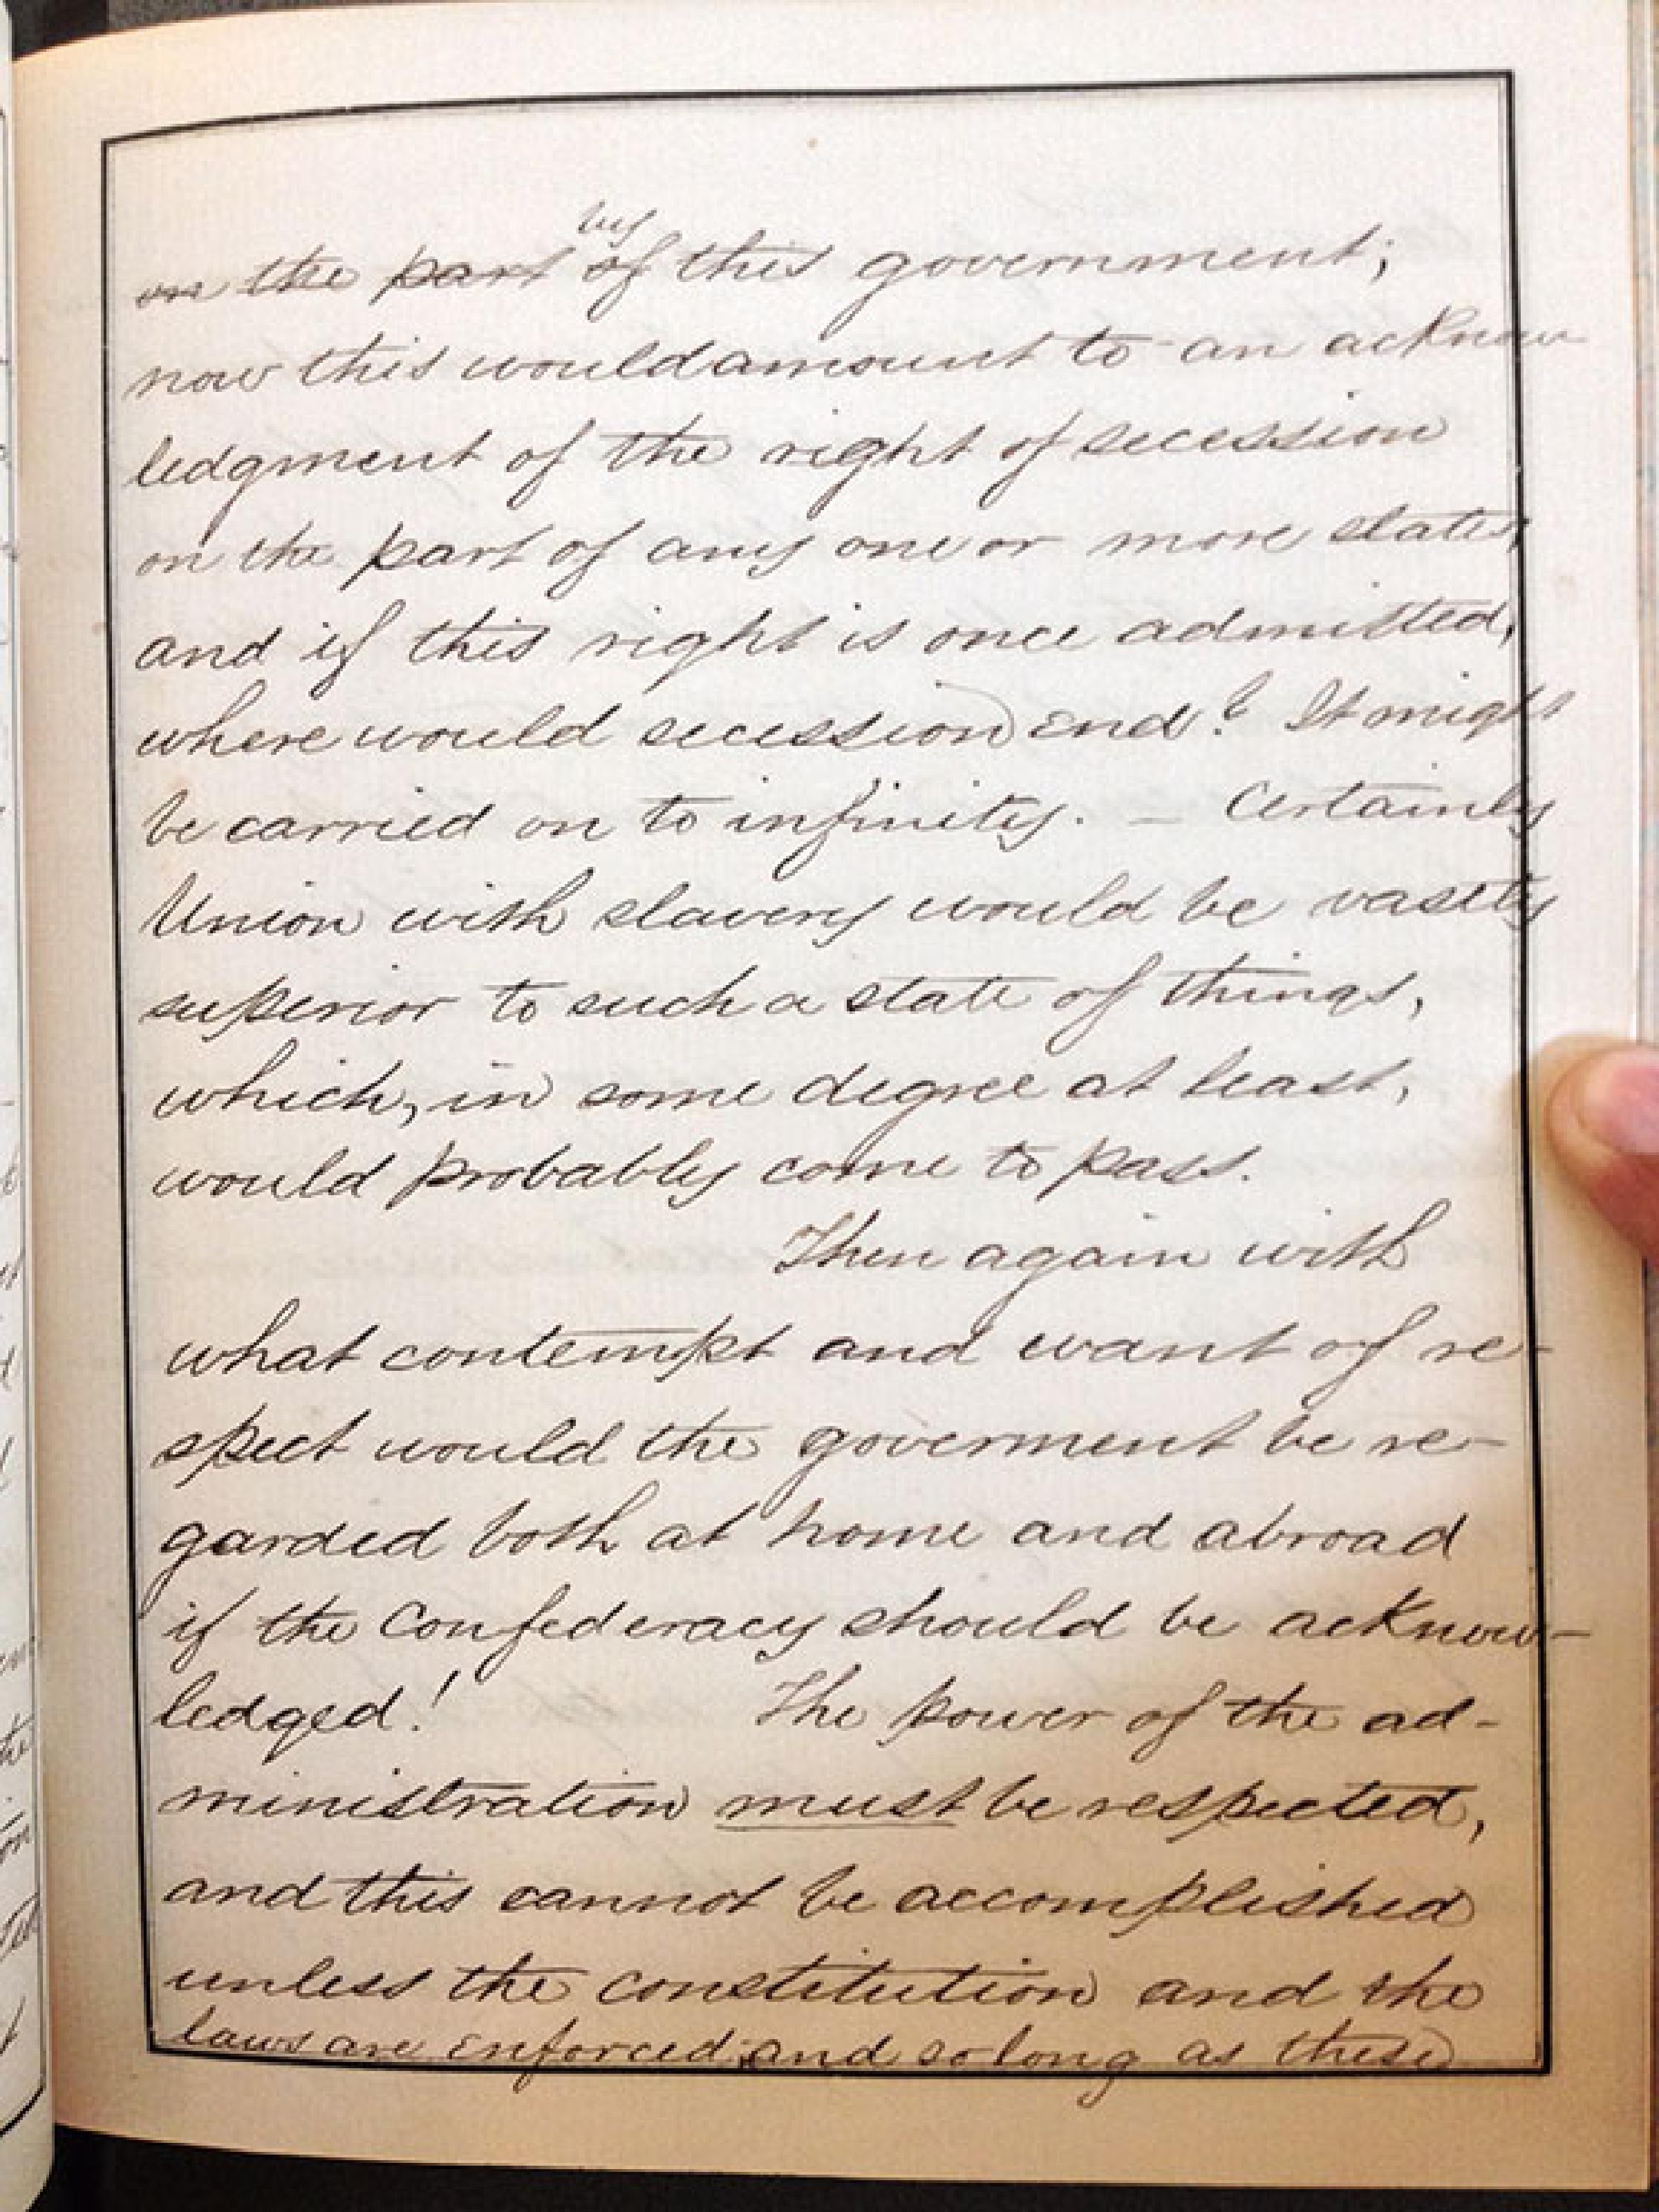 by
on the part of this government;
now this would amount to an acknow
ledgment of the right of secession
on the part of any one or more states,
and if this right is once admitted,
where would secession end? It might
be carried on to infinity. — Certainly
Union with slavery would be vastly
superior to such a state of things,
which, in some degree at least,
would probably come to pass.
Then again with
what contempt and want of re-
spect would the goverment be re-
garded both at home and abroad
if the Confederacy should be acknow-
ledged! The power of the ad-
ministration must be respected,
and this cannot be accomplished
unless the constitution and the
laws are enforced, and so long as these